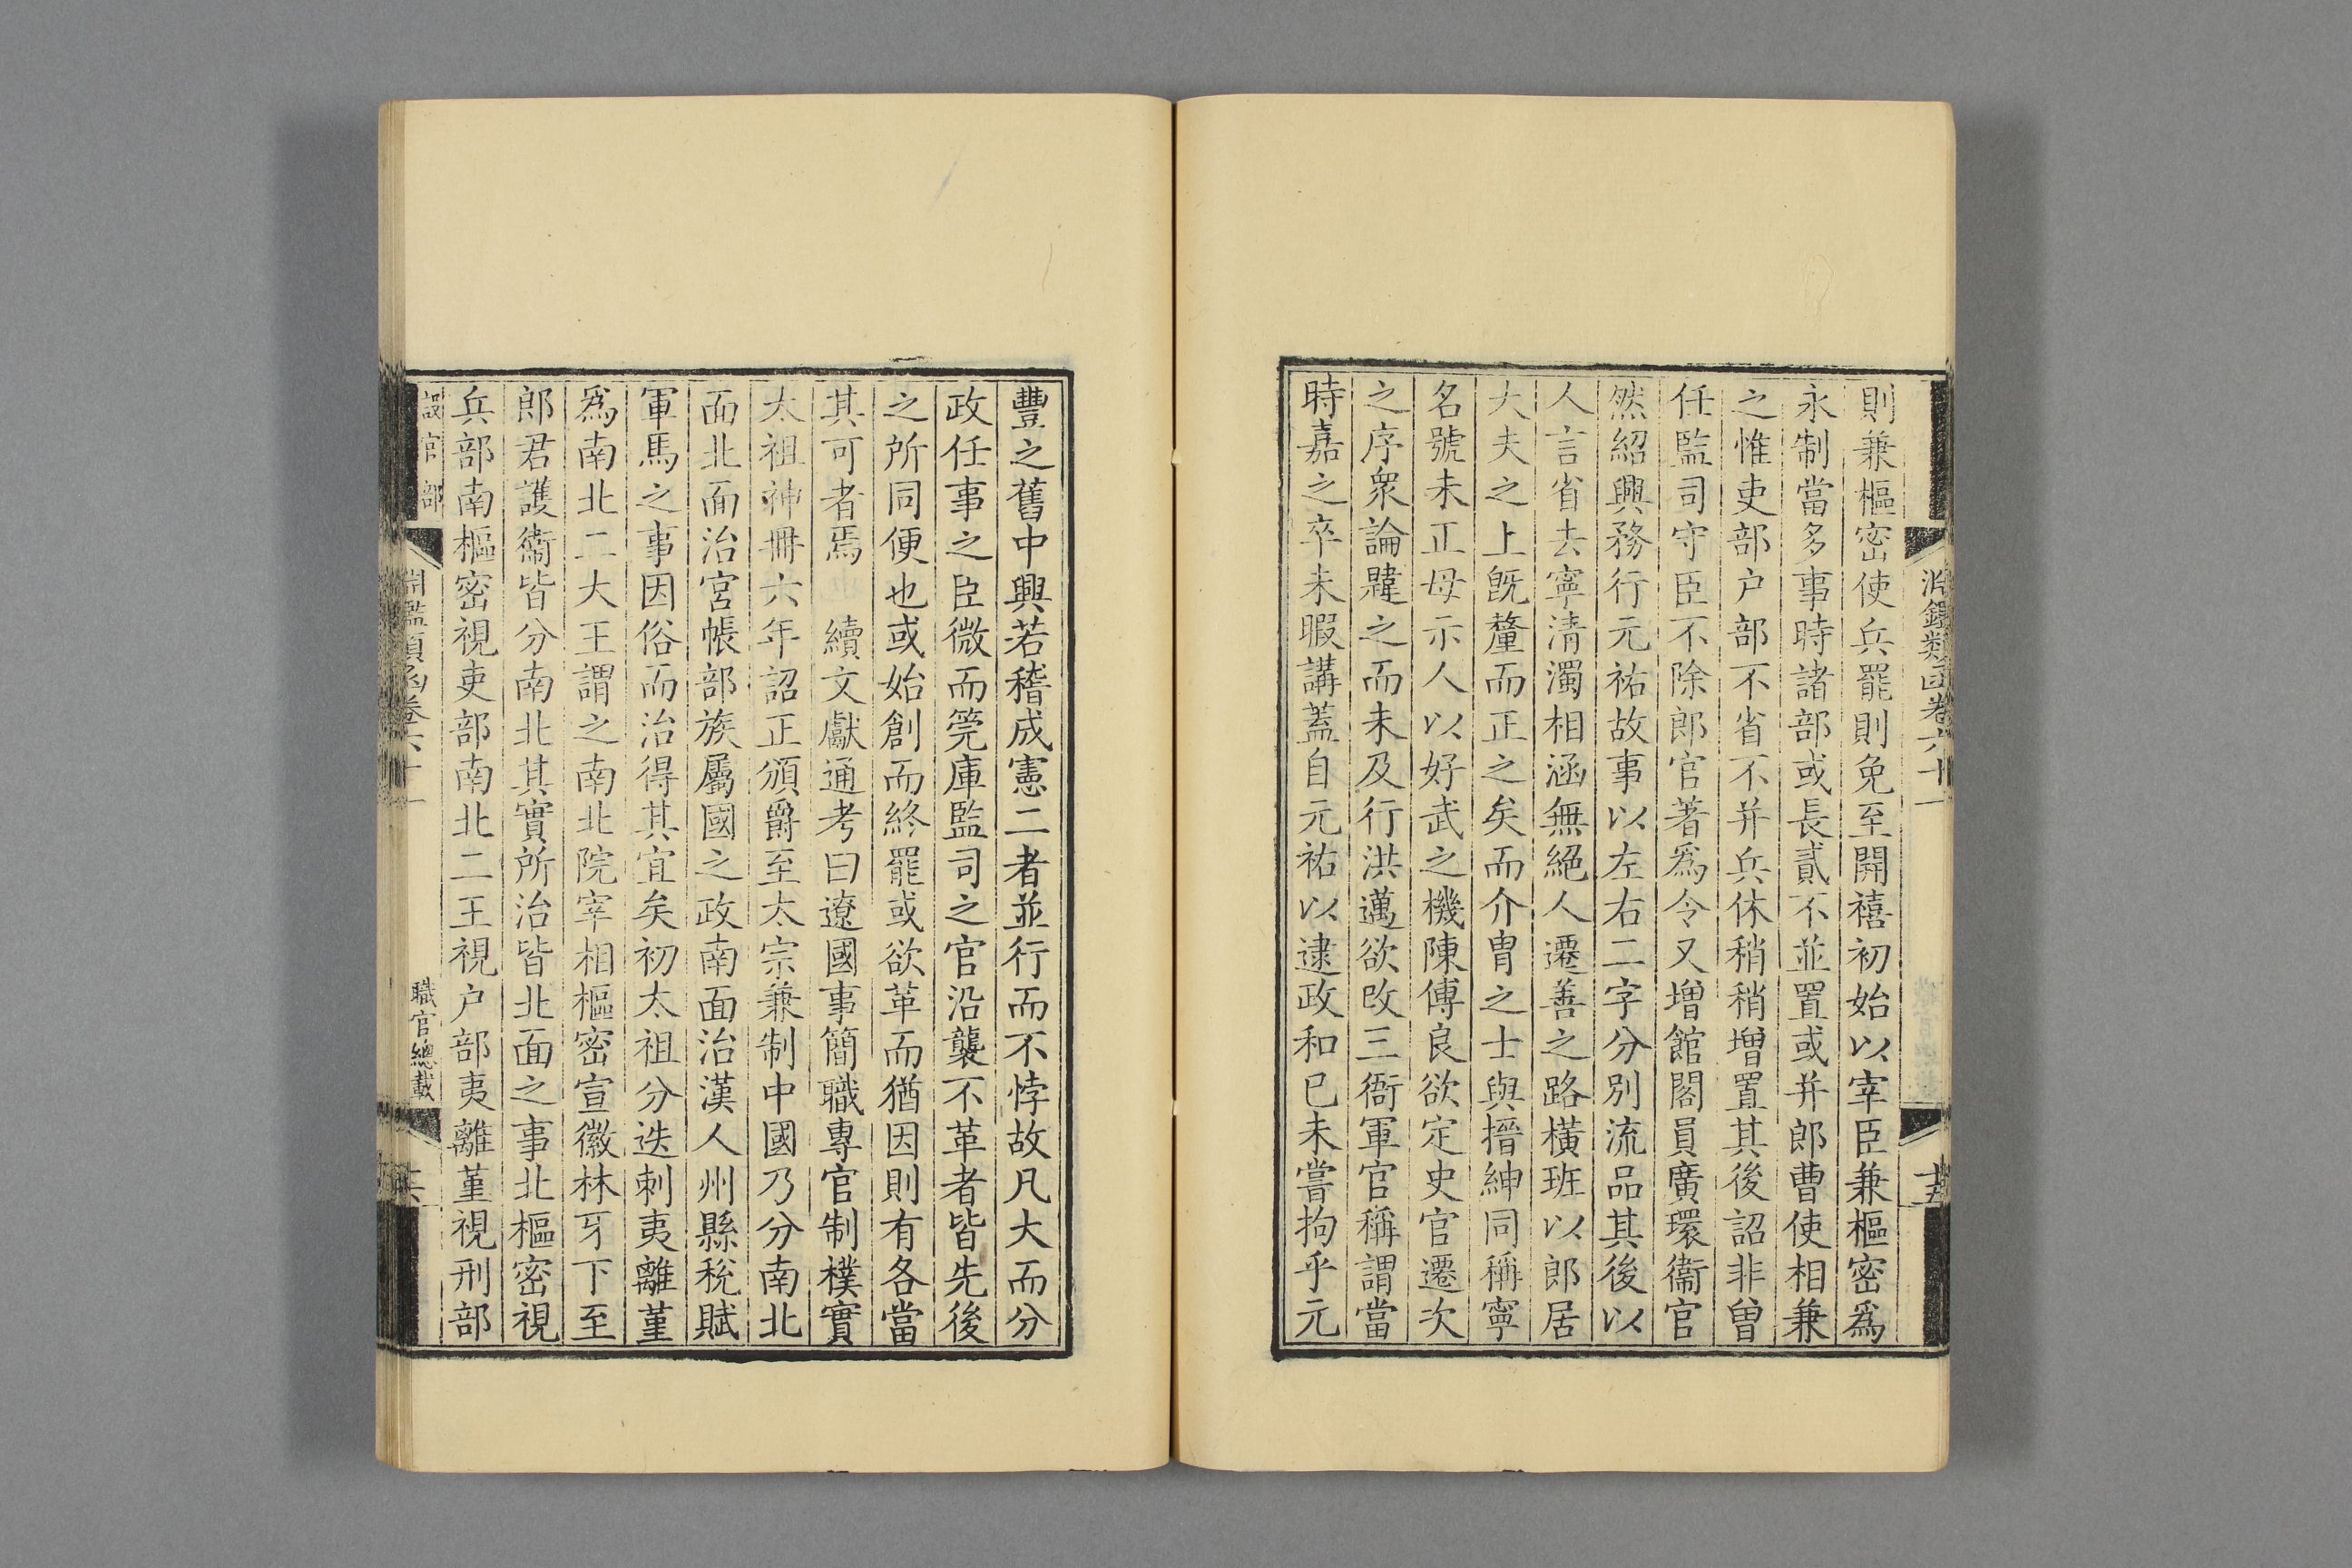 淵鑑類函卷六十一
十五
則兼樞密使兵罷則免至開禧初始以宰臣兼樞密爲
永制當多事時諸部或長貳不並置或并郎曹使相兼
之惟吏部户部不省不并兵休稍稍增置其後詔非曾
任監司守臣不除郎官著爲令又增館閣員廣環衞官
然紹興務行元祐故事以左右二字分別流品其後以
人言省去寜清濁相涵無絕人遷善之路橫班以郎居
大夫之上旣釐而正之矣而介冑之士與搢紳同稱寧
名號未正毋示人以好武之機陳傅良欲定史官遷次
之序衆論韙之而未及行洪邁欲改三衙軍官稱謂當
時嘉之卒未暇講蓋自元祐以逮政和已未嘗拘乎元
豐之舊中興若稽成憲二者並行而不悖故凡大而分
政任事之臣微而筦庫監司之官沿襲不革者皆先後
之所同便也或始創而終罷或欲革而猶因則有各當
其可者焉 續文獻通考曰遼國事簡職專官制樸實
太祖神冊六年詔正頒爵至太宗兼制中國乃分南北
面北面治宮帳部族屬國之政南面治漢人州縣稅賦
軍馬之事因俗而治得其宜矣初太祖分迭剌夷離堇
爲南北二大王謂之南北院宰相樞密宣徽林牙下至
郎君護衞皆分南北其實所治皆北面之事北樞密視
兵部南樞密視吏部南北二王視户部夷離堇視刑部
設官部
淵鑑類函卷六十一
職官總載